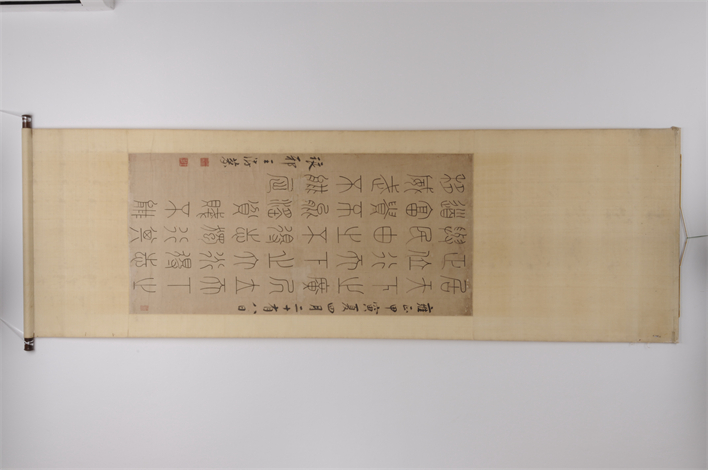 雍正甲寅夏四月二十有八日
居天下之廣居立天下之
正位行天下之大道得志
與民由之不得志獨行其
道富貴不能淫貧賤不能
移威武不能屈
琅邪王澍篆